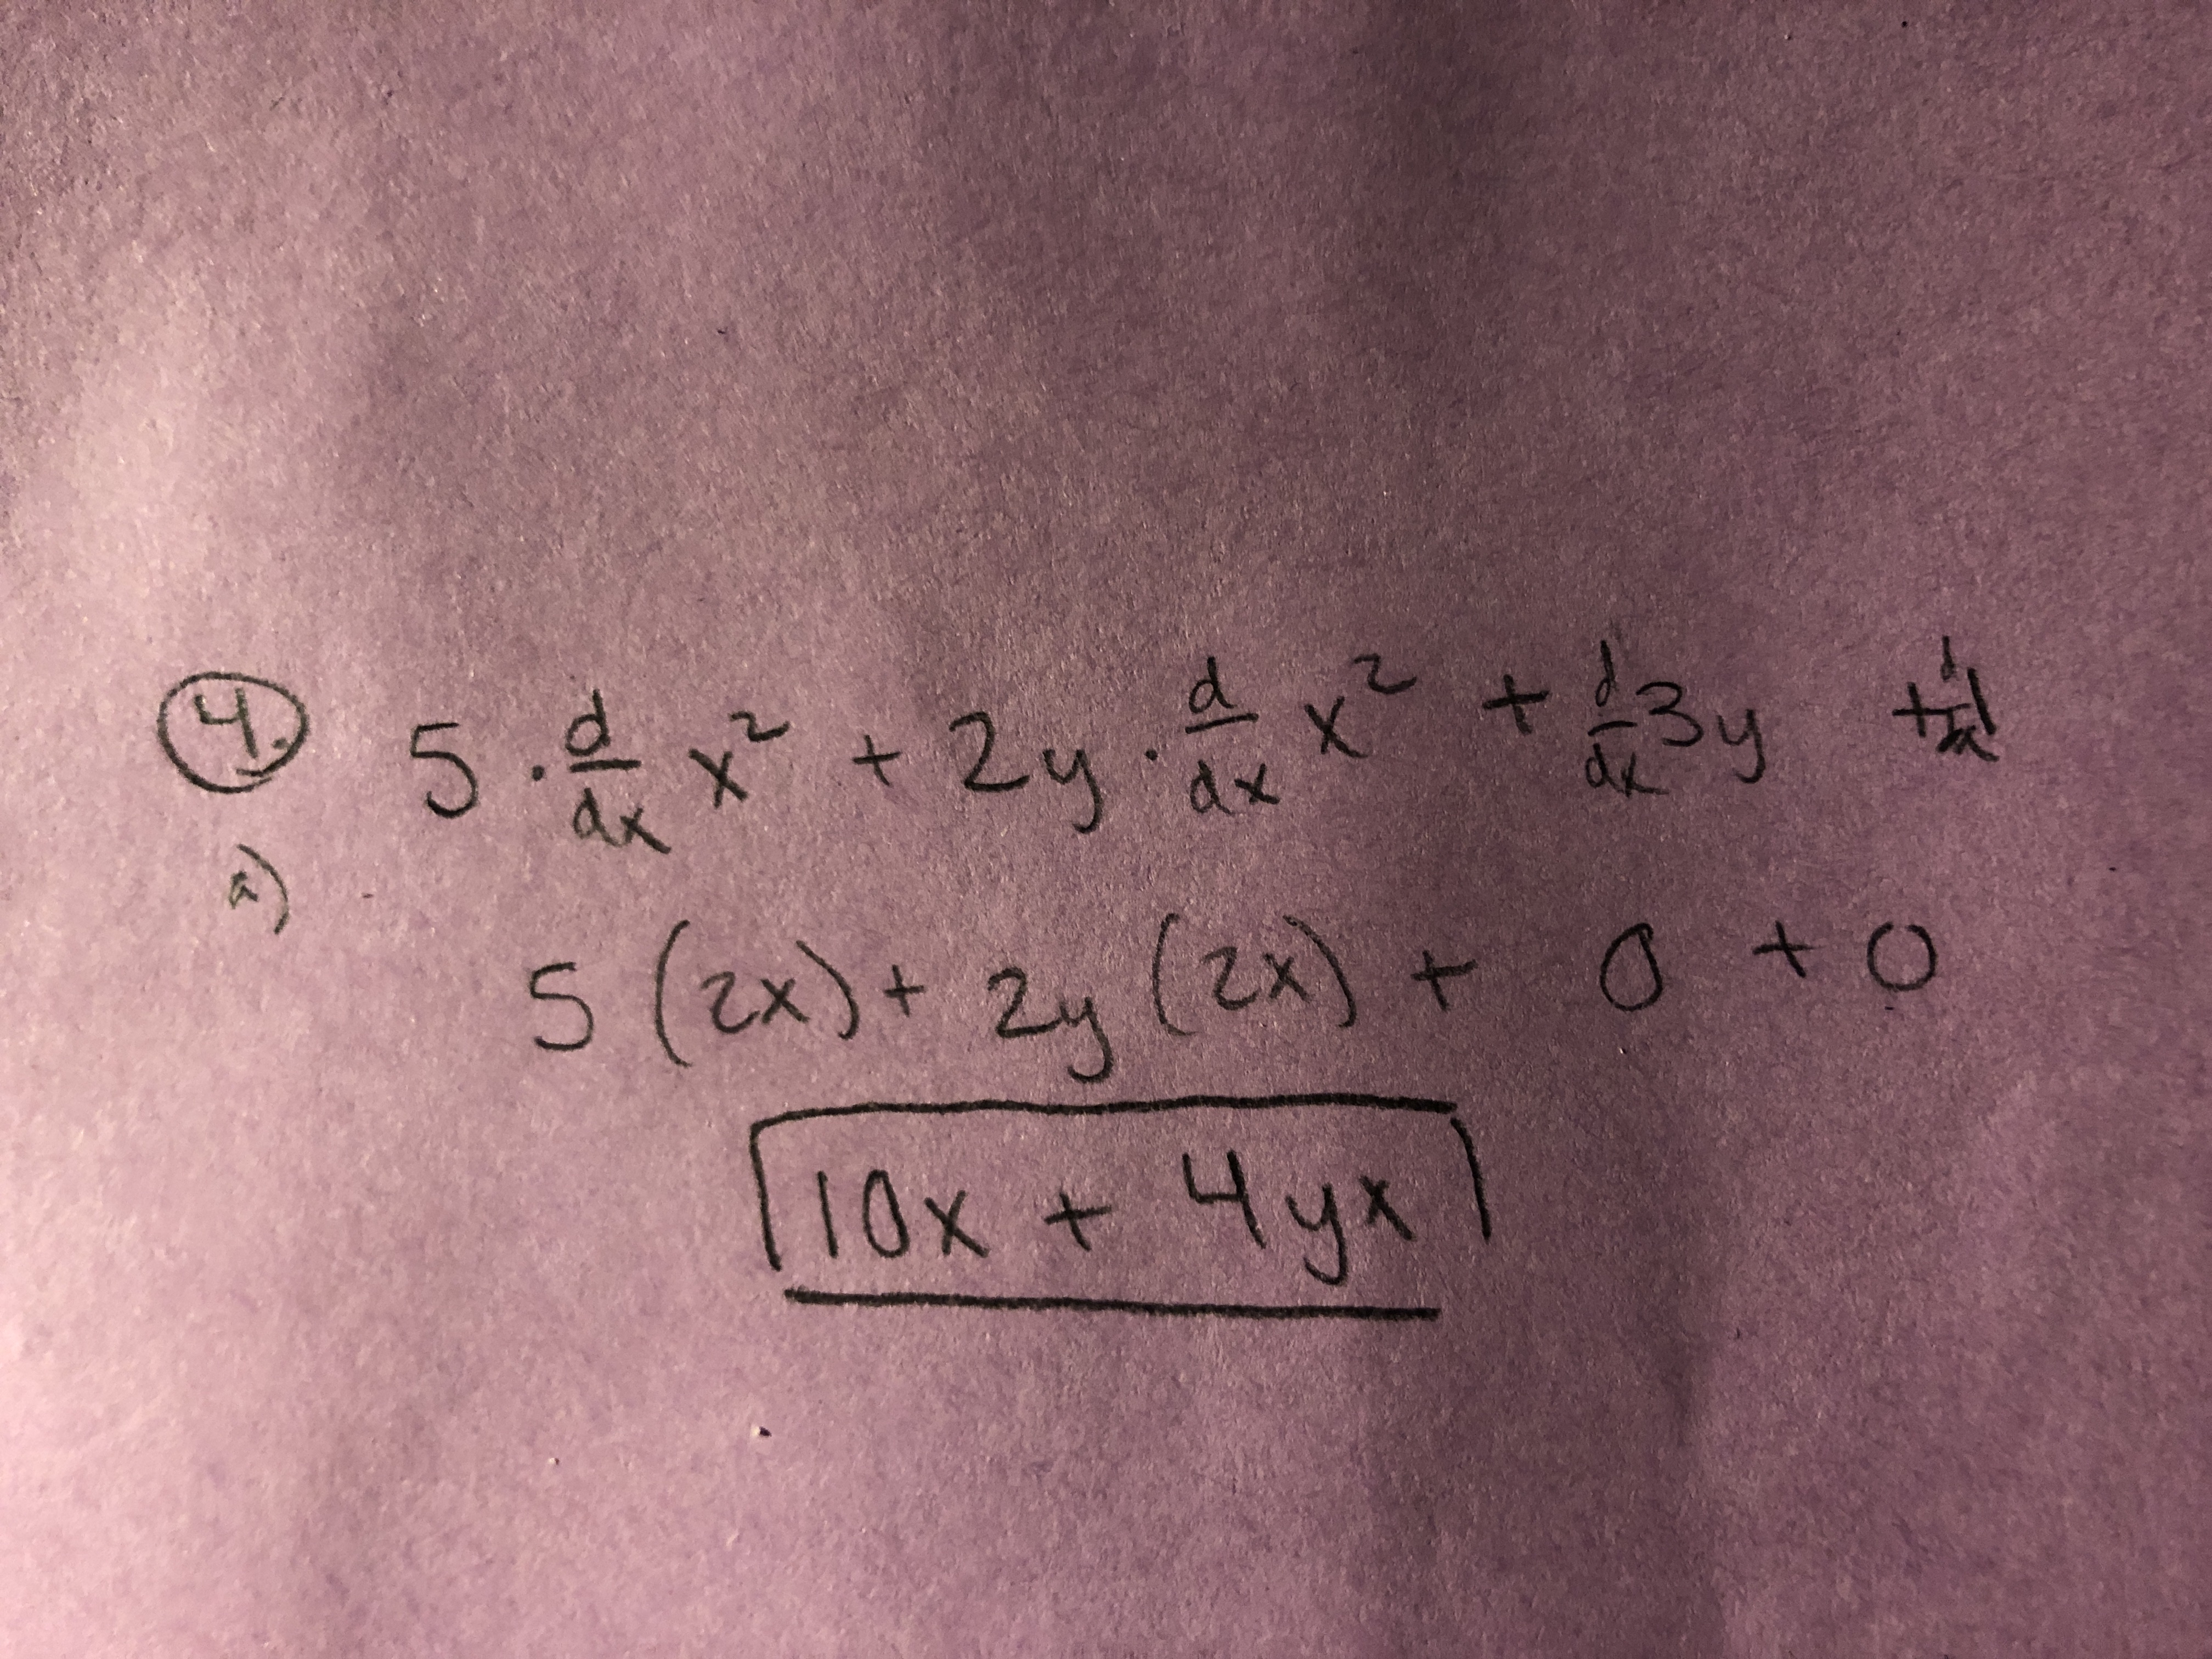 4. 5 · d/dx x² + 2y · d/dx x² + d/dx 3y +
a)
5 (2x) + 2y (2x) + 0 + 0
10x + 4yx